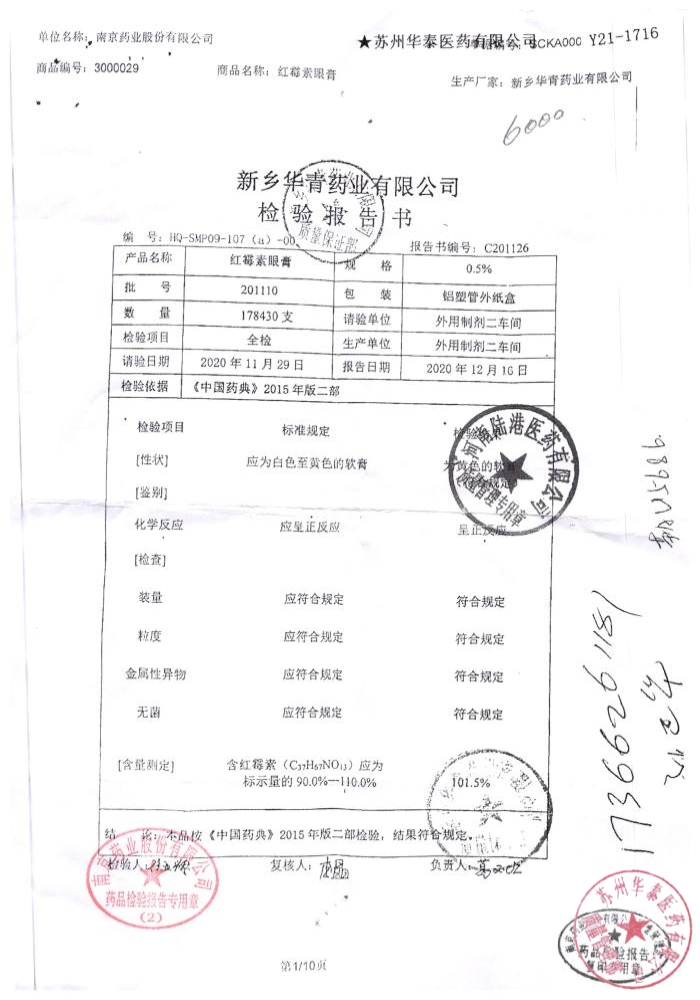 单位名称：南京药业股份有限公司
★苏州华泰医药有限公司 SCKA000 Y21-1716
商品编号：3000029 商品名称：红霉素眼膏 生产厂家：新乡华青药业有限公司
6000
新乡华青药业有限公司
检验报告书
质量保证部
编 号：HQ-SMP09-107（a）-00 报告书编号：C201126
产品名称 红霉素眼膏 规 格 0.5%
批 号 201110 包 装 铝塑管外纸盒
数 量 178430 支 请验单位 外用制剂二车间
检验项目 全检 生产单位 外用制剂二车间
请验日期 2020 年 11 月 29 日 报告日期 2020 年 12 月 16 日
检验依据 《中国药典》2015 年版二部
检验项目 标准规定 检验
[性状] 应为白色至黄色的软膏 为黄色的软膏
[鉴别]
化学反应 应呈正反应 呈正反应
[检查]
装量 应符合规定 符合规定
粒度 应符合规定 符合规定
金属性异物 应符合规定 符合规定
无菌 应符合规定 符合规定
[含量测定] 含红霉素（C₃₇H₆₇NO₁₃）应为
标示量的 90.0%—110.0% 101.5%
结 论：本品按《中国药典》2015 年版二部检验，结果符合规定。
检验人： 复核人： 负责人：
河南陆港医药有限公司
质量管理专用章
南京药业股份有限公司
药品检验报告专用章
（2）
17366261181
苏州华泰医药有限公司
药品检验报告
复印专用章
第1/10页